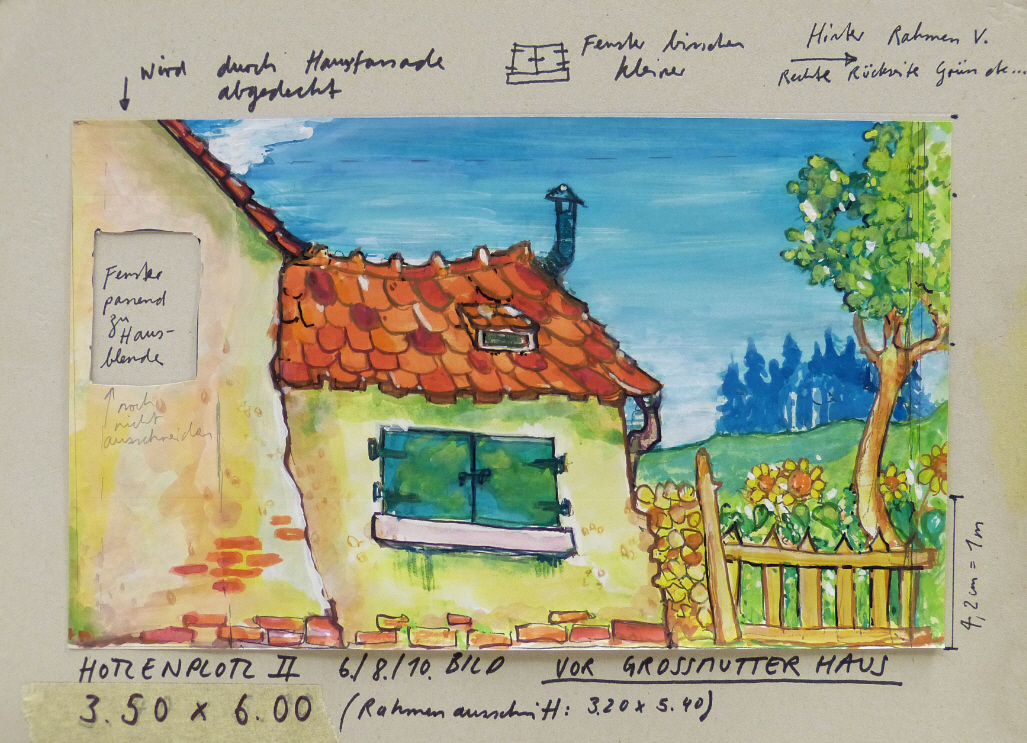 Wird durch Hauptfassade
abgedeckt
Fenster bisschen
kleiner
Hinter Rahmen V.
Rechte Rückseite Grün
Fenster
passend
zu
Haus-
blende
noch
nicht
ausschneiden
4,2 cm = 1 m
HOTZENPLOTZ II 6./8./10. BILD VOR GROSSMUTTER HAUS
3.50 x 6.00 (Rahmenausschnitt: 3.20 x 5.40)